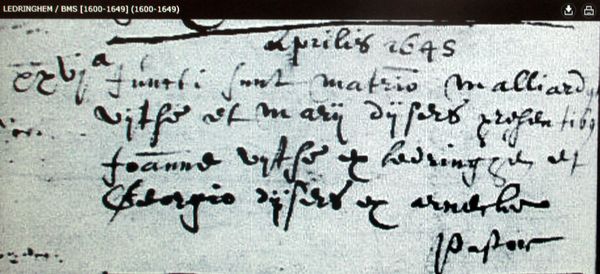 LEDRINGHEM / BMS [1600-1649] (1600-1649)
Aprilis 1645
xxvija Juncti sunt matrio Malliardus
vitse et Marij dijsers presentibus
Joanne vitse ex ledringhen et
Georgio dijsers ex arneche
Pastor